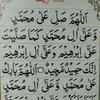 اَللّٰهُمَّ صَلِّ عَلٰى مُحَمَّدٍ
وَّعَلٰٓى اٰلِ مُحَمَّدٍ كَمَا صَلَّيْتَ
عَلٰٓى اِبْرٰهِيْمَ وَعَلٰٓى اٰلِ اِبْرٰهِيْمَ
اِنَّكَ حَمِيْدٌ مَّجِيْدٌ اَللّٰهُمَّ بَارِكْ
عَلٰى مُحَمَّدٍ وَّعَلٰٓى اٰلِ مُحَمَّدٍ